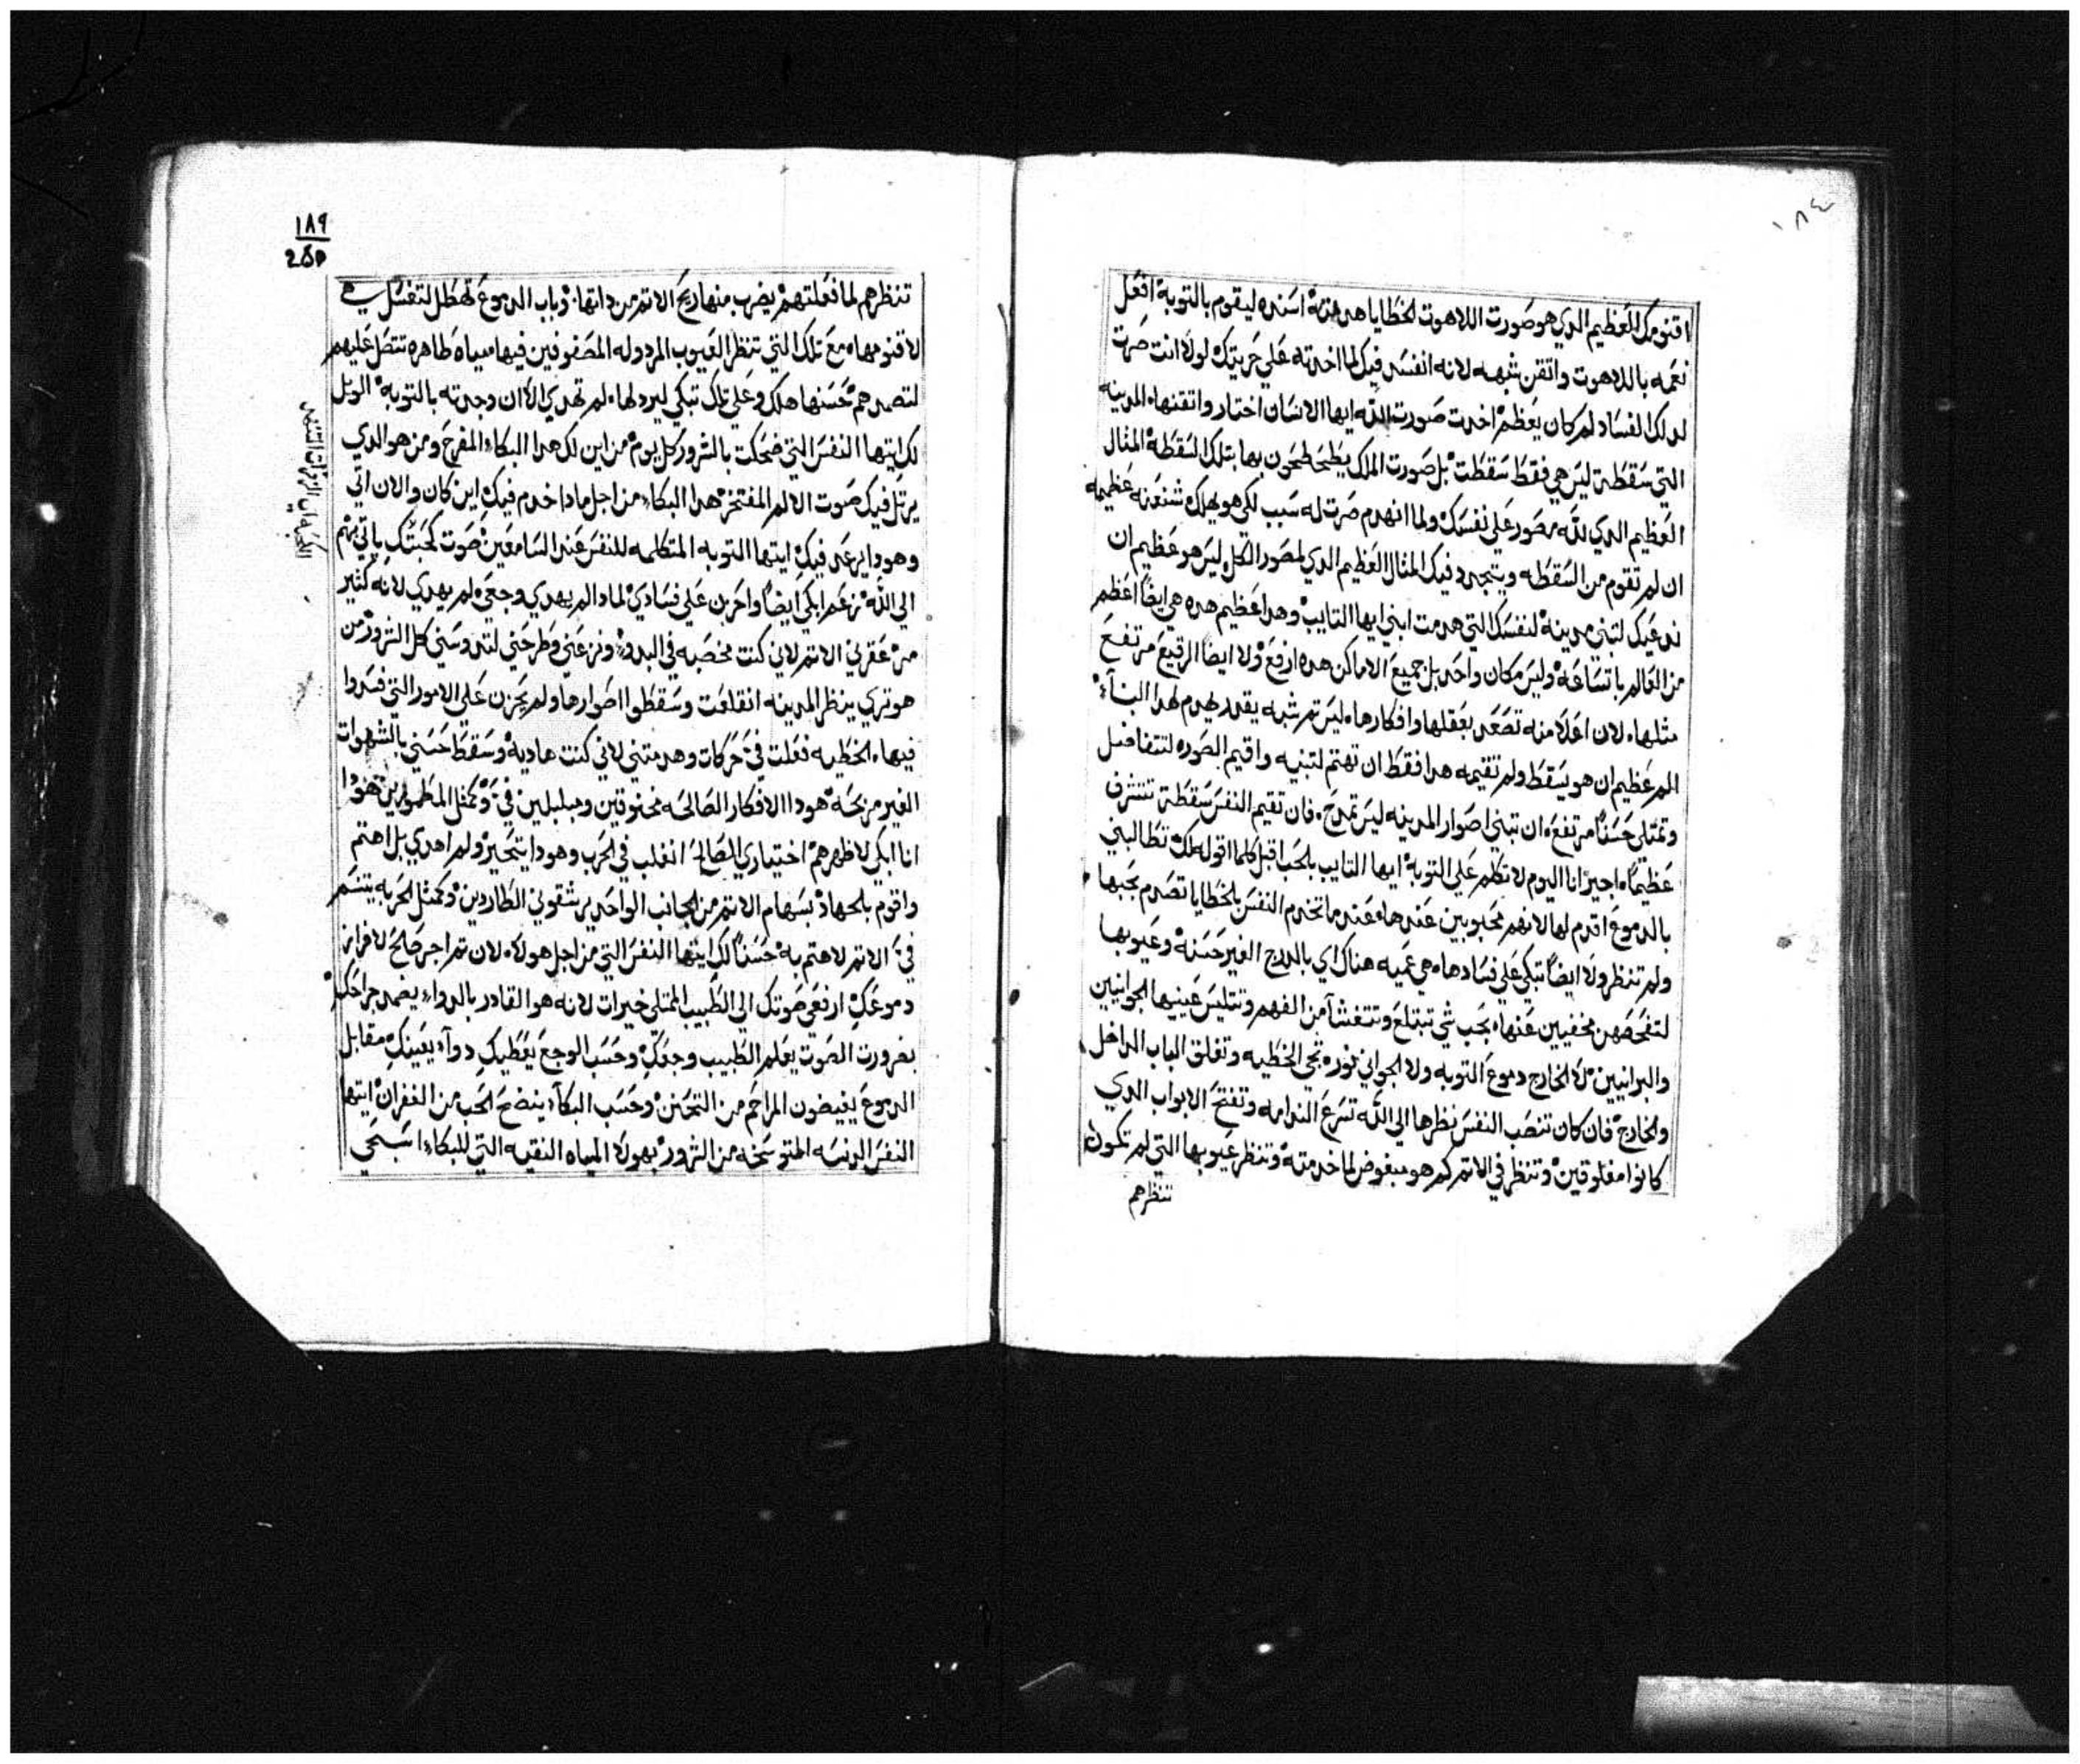 ١٨٤
اقنومك العظيم الدي هو صورت اللاهوت الخطايا هدمته اسنده ليقوم بالتوبه افعل
نعمه باللاهوت واتقن شبهه لانه انفسد فيك لما اخدته علي حريتك لولا انت صرت
لدلك الفساد لم كان يعظم اخدت صورت الله ايها الانسان اختار واتقنها المدينه
التي سقطة ليس هي فقط سقطت بل صورت الملك يطحون بها بتلك السقطه المثال
العظيم الدي لله مصور علي نفسك ولما انهدم صرت له سبب لكي هو يهلك شنعنه عظيمه
ان لم تقوم من السقطه ويتجدد فيك المثال العظيم الدي لمصور الكل ليس هو عظيم ان
ندعيك لتبني مدينة لنفسك التي هدمت ابني ايها التايب وهدا عظيم هده هي ايضا اعظم
من العالم باتساعه وليس مكان واحد بل جميع الاماكن هده ارفع ولا ايضا الرقيع مرتفع
مثلها لان اعلا منه تصعد بعقلها وافكارها ليس تم شبه يقدر يهدم لهدا البنآء
المر عظيم ان هو يسقط ولم تقيمه هدا فقط ان تهتم لتبنيه واقيم الصوره لتتفاضل
وتمتلي حسنا مرتفع ان تبني اصوار المدينه ليس تمدح فان تقيم النفس سقطة تتشرف
عظيما اجيز انا اليوم لاتكلم علي التوبه ايها التايب بالحب اقبل كلما اقوله لك تطالبني
بالدموع اقدم لها لانهم محبوبين عندها عندما تخدم النفس بالخطايا تصدم بحبها
ولم تنظر ولا ايضا تبكي علي فسادها هي عميه هناك اي بالدرج الغير حسنة وعيوبها
لتفحصهن مخفيين عنها بحب شي تبتلع وتتغشا من الفهم وتتليس عينيها الجوانيين
والبرانيين لا الخارج دموع التوبه ولا الجواني نوره تجي الخطيه وتغلق الباب الداخل
والخارج فان كان تنصب النفس نظرها الي الله تسرع الندامه وتفتح الابواب الدي
كانوا مغلوقين وتنظر في الاتم كم هو مبغوض لما خدمته وتنظر عيوبها التي لم تكون
تنظرهم
١٨٩
تنظرهم لما فعلتهم يضرب منها ريح الاتم من داتها وباب الدموع تهطل لتغسل
لاقنومها مع تلك التي تنظر العيوب المردوله المصفوفين فيها مياه طاهره تتصل عليهم
لتصدهم حسنها هلك وعلي تلك تبكي ليرد لها لم تهدي الأن وجدته بالتوبه الويل
لك ايتها النفس التي ضحكت بالشرور كل يوم من اين لك هدا البكاء المفرح ومن هو الدي
يرتل فيك صوت الالم المفتخر هدا البكاء من اجل مادا خدم فيك اين كان والان اتي
وهودا يرعد فيك ايتها التوبه المتكلمه للنفس عند السامعين صوت محبتك ياتي بهم
الي الله نزعم ابكي ايضا واحزن علي فسادي لمادا لم يهدي وجعي لم يهدي لانه كثير
من عقرني الاتم لاني كنت مخصبه في البدو ونزعني وطرحني لتدوسني كل الشرور من
هو تري ينظر المدينه انقلعت وسقطوا اصوارها ولم يحزن علي الامور التي فسدوا
فيها الخطيه فعلت في حركات وهدمتني لاني كنت هاديه وسقط حسني بالشهوات
الغير مربحه هودا الافكار الصالحه مخنوقين ومبلبلين في وكمثل المطمورين
انا ابكي لاظهرهم اختياري الصالح انغلب في الحرب وهودا يتحير ولم اهدي بل اهتم
واقوم بالجهاد بسهام الاتم من الجانب الواحد يرشقوني الطاردين وكمثل الحربه يتسم
في الاتم لاهتم به حسنا لك ايتها النفس التي من اجل هولاء لان تم اجر صالح لافراز
دموعك ارفعي صوتك الي الطبيب الممتلي خيرات لانه هو القادر بالدواء يضمد جراحك
بضرورت الصوت يعلم الطبيب وجعك وحسب الوجع يعطيك دوآء يعينك مقابل
الدموع يفيضون المراحم من التحنن وحسب البكآء ينضح الحب من الغفران ايتها
النفس الدنسه المتوسخه من الشرور بهولاء المياه النقيه التي للبكاء اسبحي